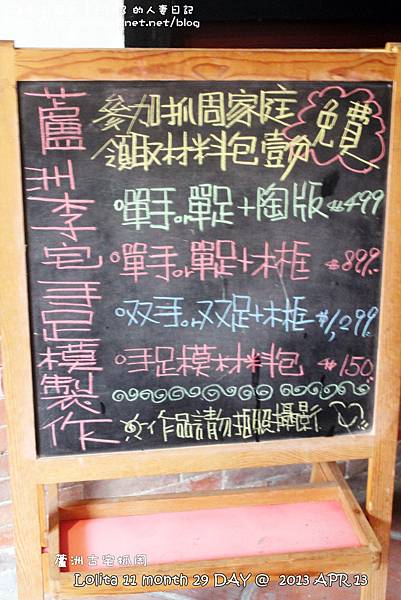 的人妻日記
net.net/blog
蘆洲李宅手足模製作
參加抓周家庭
領取材料包壹份
免費
單手or單足+陶版 $499
單手or單足+木框 $899.-
双手or双足+木框 $1,299
手足模材料包 $150
作品請勿拍照攝影
蘆洲古宅抓周
Lolita 11 month 29 DAY @ 2013 APR.13